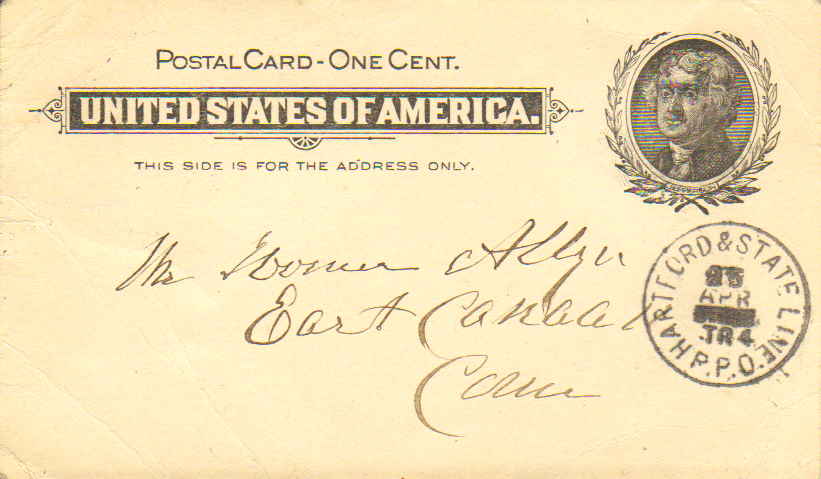 POSTAL CARD - ONE CENT.
UNITED STATES OF AMERICA.
THIS SIDE IS FOR THE ADDRESS ONLY.
Mr Homer Allyn
East Canaan
Conn
HARTFORD & STATE LINE. R.P.O.
25
APR
TR 4